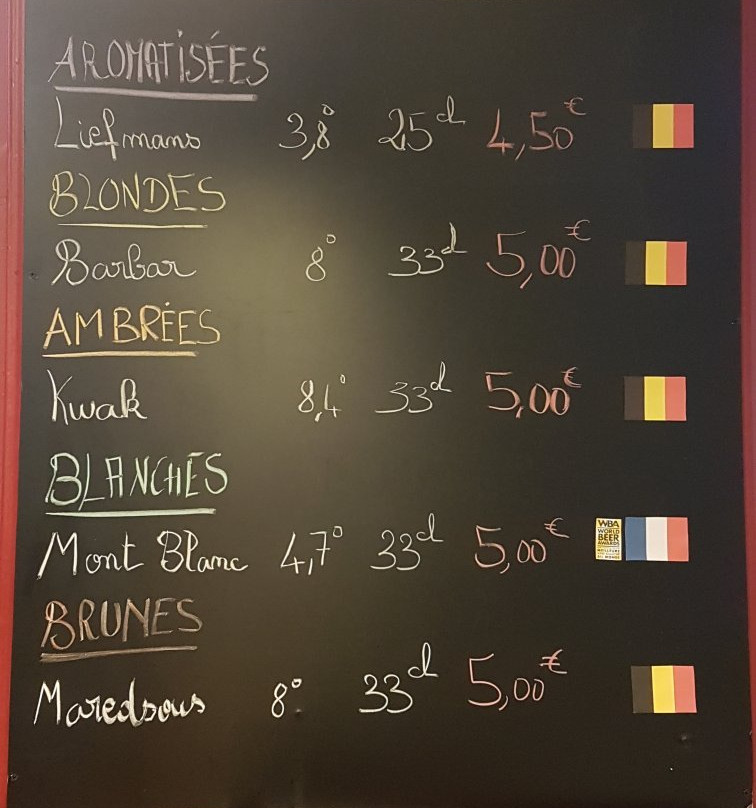 AROMATISÉES
Liefmans 3,8° 25 cl 4,50€
BLONDES
Barbar 8° 33 cl 5,00€
AMBRÉES
Kwak 8,4° 33 cl 5,00€
BLANCHES
Mont Blanc 4,7° 33 cl 5,00€
WBA
WORLD
BEER
AWARDS
BRUNES
Maredsous 8° 33 cl 5,00€